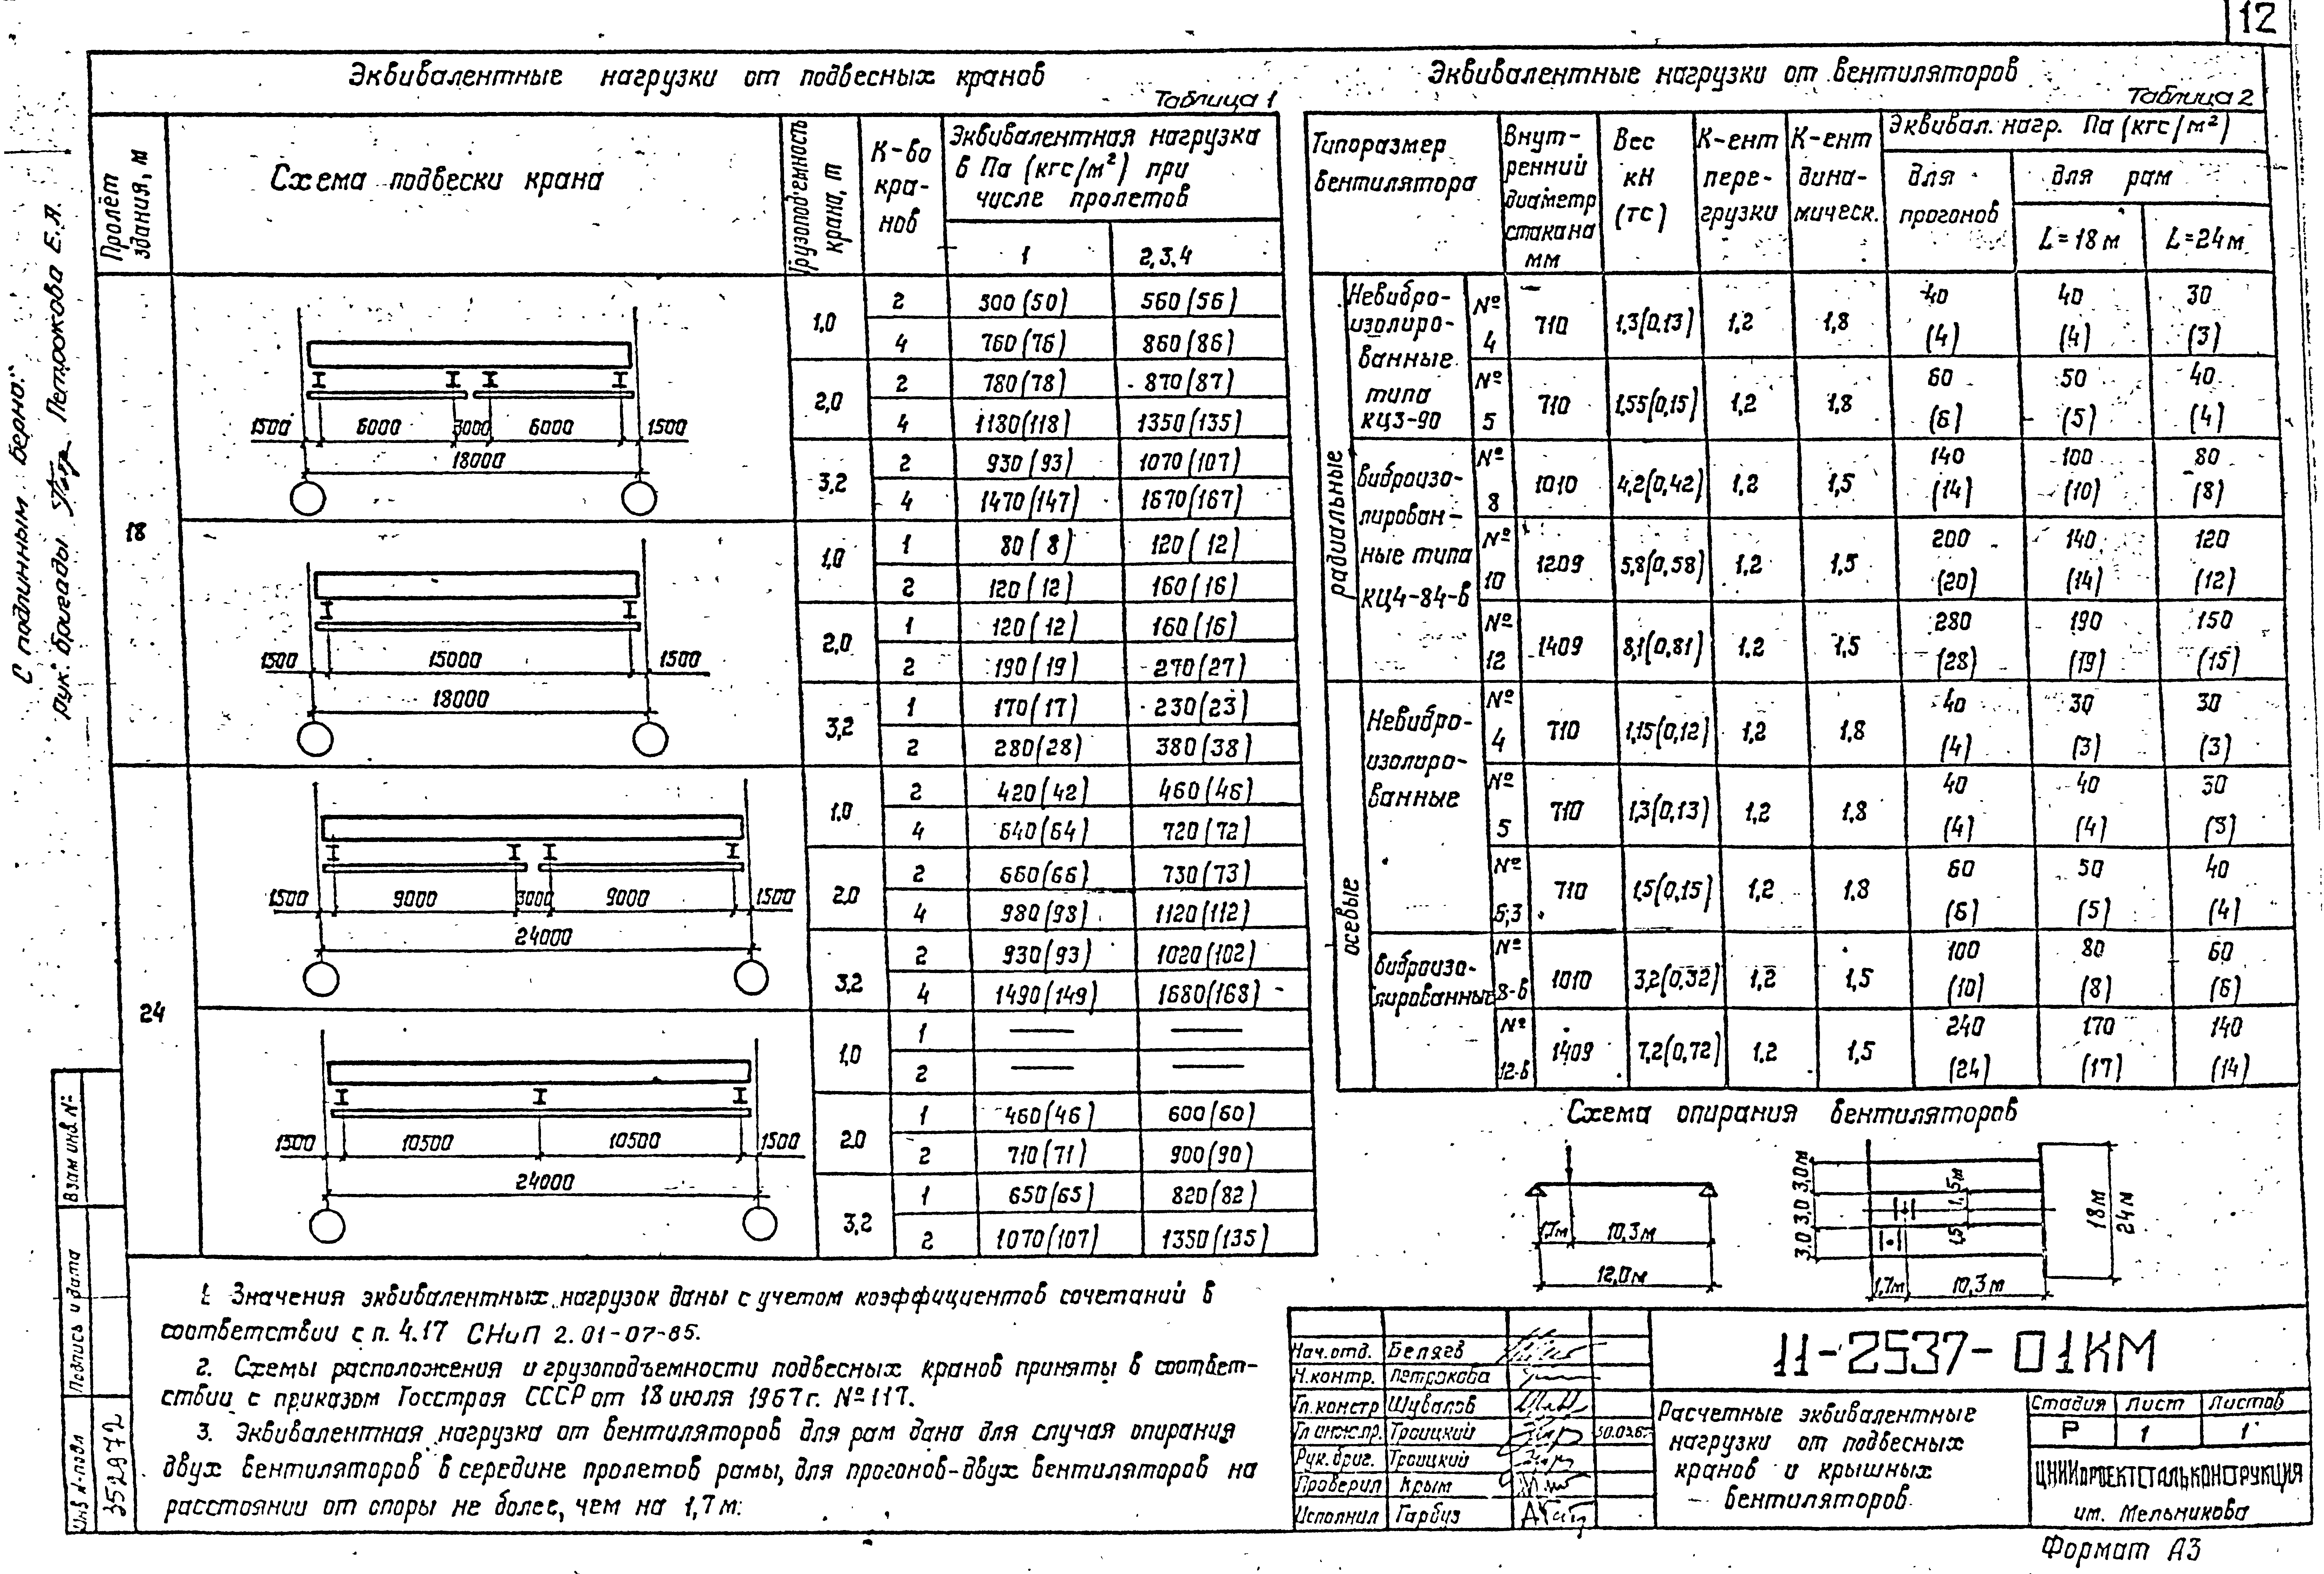 12
Эквивалентные нагрузки от подвесных кранов
Таблица 1
Пролёт здания, м
Схема подвески крана
Грузоподъемность крана, т
К-во кра-нов
Эквивалентная нагрузка
в Па (кгс/м²) при
числе пролетов
1 2,3,4
18
1500 6000 3000 6000 1500
18000
1,0 2 300 (50) 560 (56)
4 760 (76) 860 (86)
2,0 2 780 (78) 870 (87)
4 1180 (118) 1350 (135)
3,2 2 930 (93) 1070 (107)
4 1470 (147) 1670 (167)
1500 15000 1500
18000
1,0 1 80 (8) 120 (12)
2 120 (12) 160 (16)
2,0 1 120 (12) 160 (16)
2 190 (19) 270 (27)
3,2 1 170 (17) 230 (23)
2 280 (28) 380 (38)
24
1500 9000 3000 9000 1500
24000
1,0 2 420 (42) 460 (46)
4 640 (64) 720 (72)
2,0 2 660 (66) 730 (73)
4 980 (98) 1120 (112)
3,2 2 930 (93) 1020 (102)
4 1490 (149) 1680 (168)
1500 10500 10500 1500
24000
1,0 1 — —
2 — —
2,0 1 460 (46) 600 (60)
2 710 (71) 900 (90)
3,2 1 650 (65) 820 (82)
2 1070 (107) 1350 (135)
Эквивалентные нагрузки от вентиляторов
Таблица 2
Типоразмер вентилятора
Внут-ренний диаметр стакана мм
Вес кН (тс)
К-ент пере-грузки
К-ент дина-мическ.
Эквивал. нагр. Па (кгс/м²)
для прогонов
для рам
L=18м L=24м
радиальные
Невибро-изолиро-ванные типа КЦ3-90
№ 4 710 1,3(0,13) 1,2 1,8 40 (4) 40 (4) 30 (3)
№ 5 710 1,55(0,15) 1,2 1,8 60 (6) 50 (5) 40 (4)
Виброизо-лирован-ные типа КЦ4-84-В
№ 8 1010 4,2(0,42) 1,2 1,5 140 (14) 100 (10) 80 (8)
№ 10 1209 5,8(0,58) 1,2 1,5 200 (20) 140 (14) 120 (12)
№ 12 1409 8,1(0,81) 1,2 1,5 280 (28) 190 (19) 150 (15)
осевые
Невибро-изолиро-ванные
№ 4 710 1,15(0,12) 1,2 1,8 40 (4) 30 (3) 30 (3)
№ 5 710 1,3(0,13) 1,2 1,8 40 (4) 40 (4) 30 (3)
№ 6,3 710 1,5(0,15) 1,2 1,8 60 (6) 50 (5) 40 (4)
Виброизо-лированные
№ 8-В 1010 3,2(0,32) 1,2 1,5 100 (10) 80 (8) 60 (6)
№ 12-В 1409 7,2(0,72) 1.2 1,5 240 (24) 170 (17) 140 (14)
Схема опирания вентиляторов
1,7м 10,3м
12,0м
3,0 3,0 3,0 3,0м
1,5м
1,5
18м
24м
1,7м 10,3м
1. Значения эквивалентных нагрузок даны с учетом коэффициентов сочетаний в
соответствии с п. 4.17 СНиП 2.01-07-85.
2. Схемы расположения и грузоподъемности подвесных кранов приняты в соответ-
ствии с приказом Госстроя СССР от 18 июля 1967г. №117.
3. Эквивалентная нагрузка от вентиляторов для рам дана для случая опирания
двух вентиляторов в середине пролетов рамы, для прогонов-двух вентиляторов на
расстоянии от опоры не более, чем на 1,7м.
11-2537-01КМ
Нач.отд. Беляев
Н.контр. Петрокова
Гл.констр Шувалов
Гл инж.пр. Троицкий
Рук.бриг. Троицкий
Проверил Крым
Исполнил Гарбуз
Расчетные эквивалентные
нагрузки от подвесных
кранов и крышных
вентиляторов
Стадия Лист Листов
Р 1 1
ЦНИИПРОЕКТСТАЛЬКОНСТРУКЦИЯ
им. Мельникова
Формат А3
С подлинным верно:
рук. бригады Петрокова Е.Я.
Взам инв. №
Подпись и дата
Инв № подл
352972